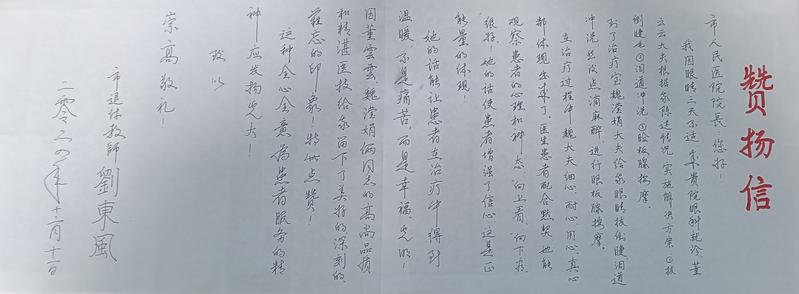 赞扬信
市人民医院院长 您好！
我因眼睛三天不适，来贵院眼科就诊，董
立云大夫根据我陈述情况，实施解决方案①拔
倒睫毛②泪道冲洗③睑板腺按摩。
到了治疗室魏滢娟大夫给我眼睛拔倒睫泪道
冲洗然后点滴麻醉，进行眼板腺按摩。
在治疗过程中魏大夫细心、耐心、用心、真心
都体现出来了。医生患者配合默契，她能
观察患者的心理和神态，"向上看，向下看，
很好！她的话使患者增强了信心，这是正
能量的体现！
她的话能让患者在治疗中得到
温暖，不是痛苦，而是幸福光明！
因董雲雲魏滢娟俩同志的高尚品质
和精湛医技给我留下了美好的深刻的
难忘的印象，特此点赞！
这种全心全意为患者服务的精
神应发扬光大！
致以
崇高敬礼！
市退休教师 劉東風
二零二四年十二月十一日